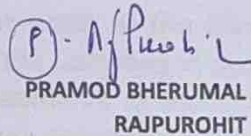 PRAMOD BHERUMAL
RAJPUROHIT